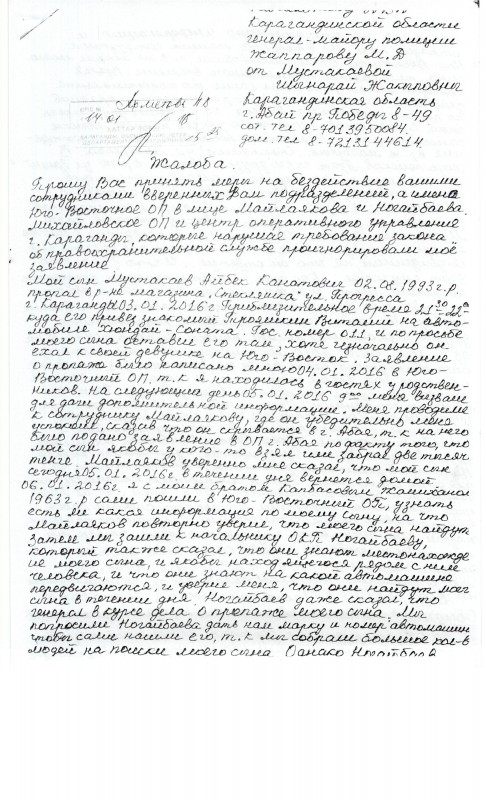 Карагандинской области
генерал-майору полиции
Жаппарову М.Д
от Мустакаевой
Жакпповны
Карагандинская область
г. Абай пр Победы 8-49
сот. тел 8-7013950084.
дом. тел. 8-7213144614.
14.01
Жалоба.
Прошу Вас принять меры на бездействие вашими
сотрудниками вверенных Вам подразделений, а именно
Юго-Восточное ОП в лице Майлаякова и Ногайбаева.
Михайловское ОП и центр оперативного управления
г. Караганды, которые нарушая требование закона
о правоохранительной службе проигнорировали моё
заявление
Мой сын Мустакаев Айбек Канатович 02.08.1993 г.р.
пропал в р-не магазина „Стекляшка" ул. Прогресса
г. Караганды 03.01.2016 г. Приблизительное время 21³⁰-22⁰⁰
куда его привез знакомый Виталий на авто-
мобиле Хюндай-Соната. Гос номер 011, и по просьбе
моего сына оставил его там, хотя изначально он
ехал к своей девушке на Юго-Восток. Заявление
о пропаже было написано мною 04.01.2016 в Юго-
Восточный ОП, т.к я находилась в гостях у родствен-
ников. На следующий день 05.01.2016 г меня вызвали
для дачи дополнительной информации. Меня проводили
к сотруднику Майлаякову, где он убедительно меня
успокоил, сказав что он скрывается в г. Абая, т.к на него
было подано заявление в ОП г. Абая по факту того, что
мой сын якобы у кого-то взял или забрал две тысячи
тенге. Майлаяков уверенно мне сказал, что мой сын
сегодня 05.01.2016 г. в течении дня вернется домой.
06.01.2016 г я с моим братом Капбасовым Жамиханом
1963 г.р сами пошли в Юго-Восточный ОП, узнать
есть ли какая информация по моему сыну, на что
Майлаяков повторно уверил, что моего сына найдут.
Затем мы зашли к начальнику ОКП Ногайбаеву,
который также сказал, что они знают местонахожде
ие моего сына, и якобы находящегося рядом с ним
человека, и что они знают на какой автомашине
передвигаются, и уверил меня, что они найдут моего
сына в течение дня Ногайбаев даже сказал, что
генерал в курсе дела о пропаже моего сына. Мы
попросили Ногайбаева дать нам марку и номер автомашины
чтобы сами нашли его, т.к мы собрали большое кол-во
людей на поиски моего сына Однако Ногайбаев